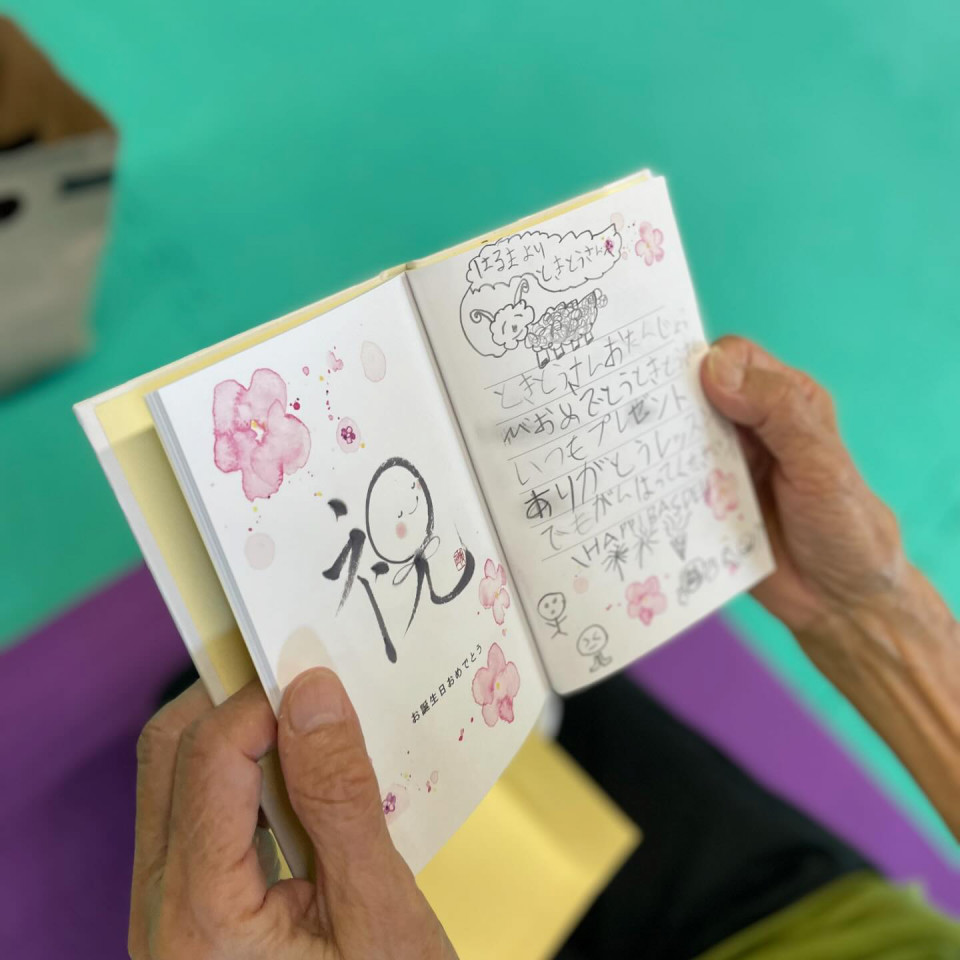 祝
お誕生日おめでとう
はるまより
ときとうさんへ
ときとうさんおたんじょ
びおめでとうときとう
いつもプレセント
ありがとうレッス
でもがんばってくださ
HAPPY